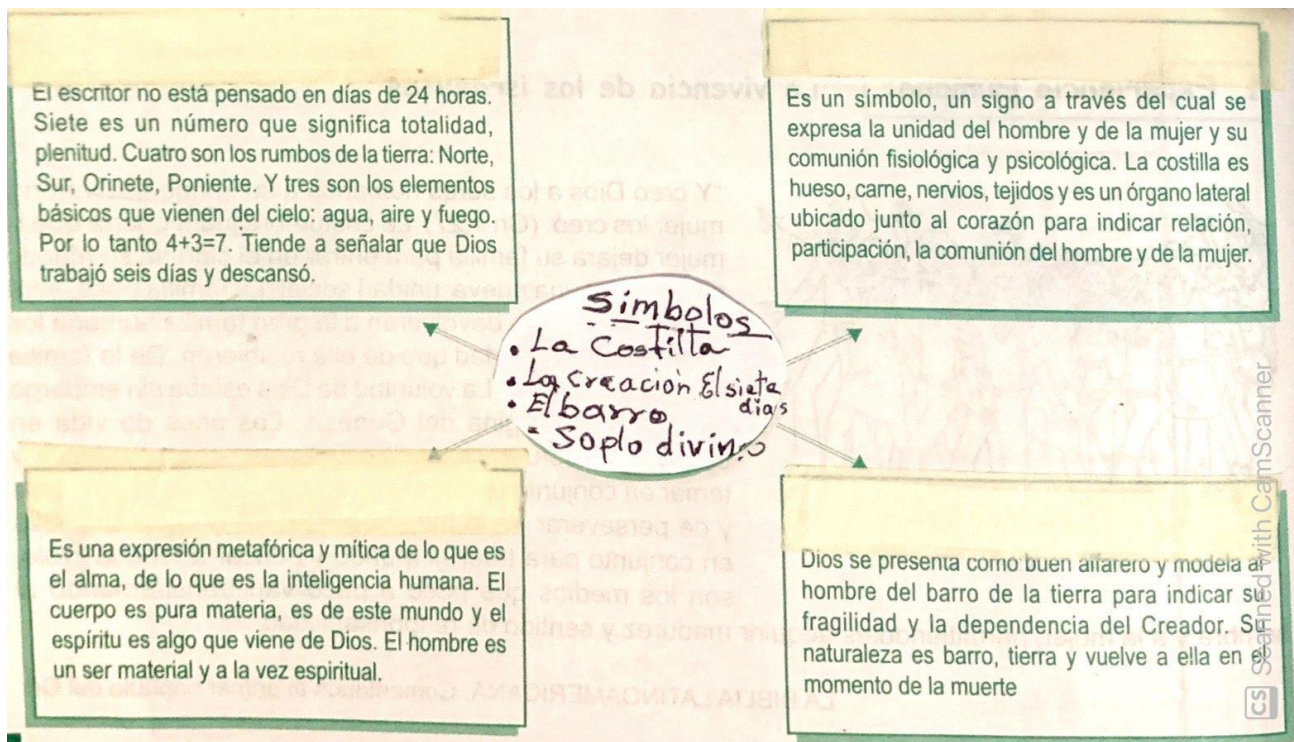 El escritor no está pensado en días de 24 horas.
Siete es un número que significa totalidad,
plenitud. Cuatro son los rumbos de la tierra: Norte,
Sur, Orinete, Poniente. Y tres son los elementos
básicos que vienen del cielo: agua, aire y fuego.
Por lo tanto 4+3=7. Tiende a señalar que Dios
trabajó seis días y descansó.
Es un símbolo, un signo a través del cual se
expresa la unidad del hombre y de la mujer y su
comunión fisiológica y psicológica. La costilla es
hueso, carne, nervios, tejidos y es un órgano lateral
ubicado junto al corazón para indicar relación,
participación, la comunión del hombre y de la mujer.
Símbolos
• La Costilla
• La Creación El siete
días
• El barro
- Soplo divino
Es una expresión metafórica y mítica de lo que es
el alma, de lo que es la inteligencia humana. El
cuerpo es pura materia, es de este mundo y el
espíritu es algo que viene de Dios. El hombre es
un ser material y a la vez espiritual.
Dios se presenta como buen alfarero y modela al
hombre del barro de la tierra para indicar su
fragilidad y la dependencia del Creador. Su
naturaleza es barro, tierra y vuelve a ella en el
momento de la muerte
CS Scanned with CamScanner